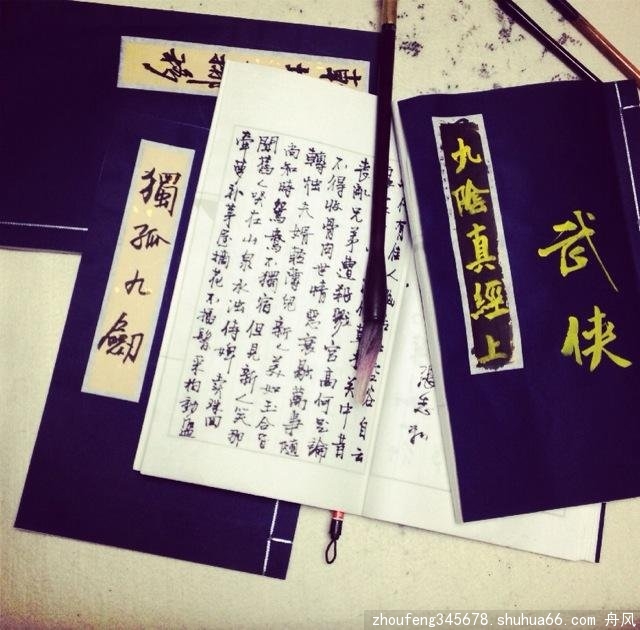 獨孤九劍
有佳人
谷自云
關中昔
喪亂兄弟遭殺戮官高何足論
不得收骨肉世情惡衰歇萬事隨
轉燭夫婿輕薄兒新人美如玉合昏
尚知時鴛鴦不獨宿但見新人笑那
聞舊人哭在山泉水濁侍婢賣珠回
牽蘿補茅屋摘花不插髮采柏動盈
九陰真經上
武俠
zhoufeng345678.shuhua66.com 舟风